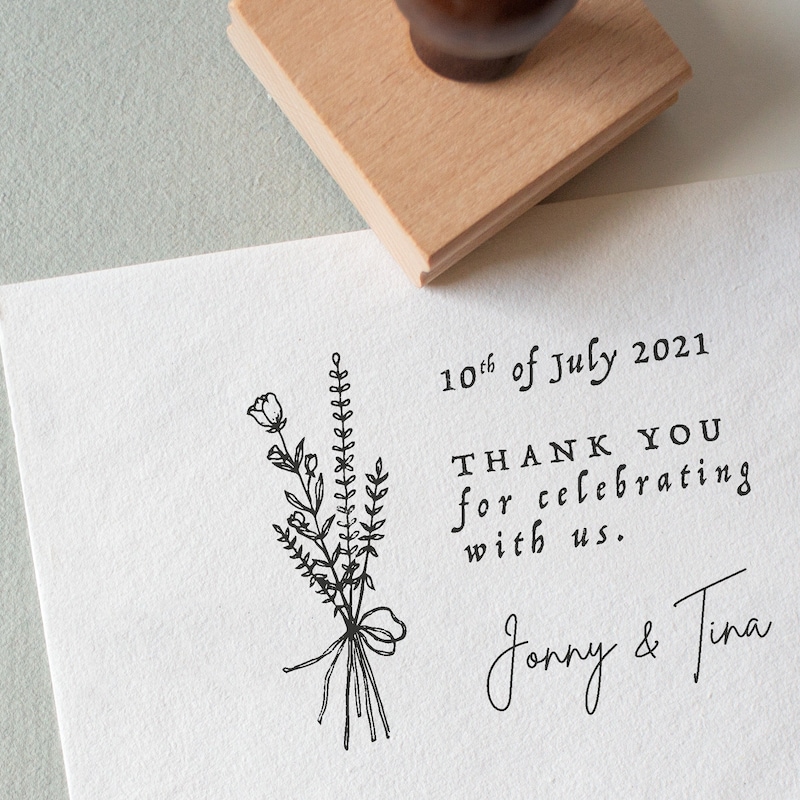 10th of July 2021
THANK YOU
for celebrating
with us.
Jonny & Tina